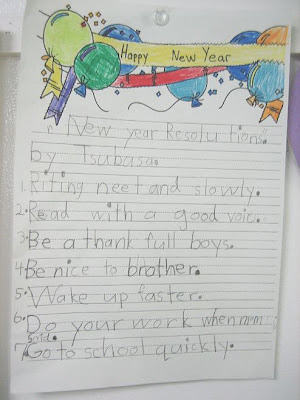 Happy New Year
"New year Resolutions."
by Tsubasa.
1. Riting neet and slowly.
2. Read with a good voic.
3. Be a thank full boys.
4. Be nice to brother.
5. Wake up faster.
6. Do your work when mom
said.
7. Go to school quickly.